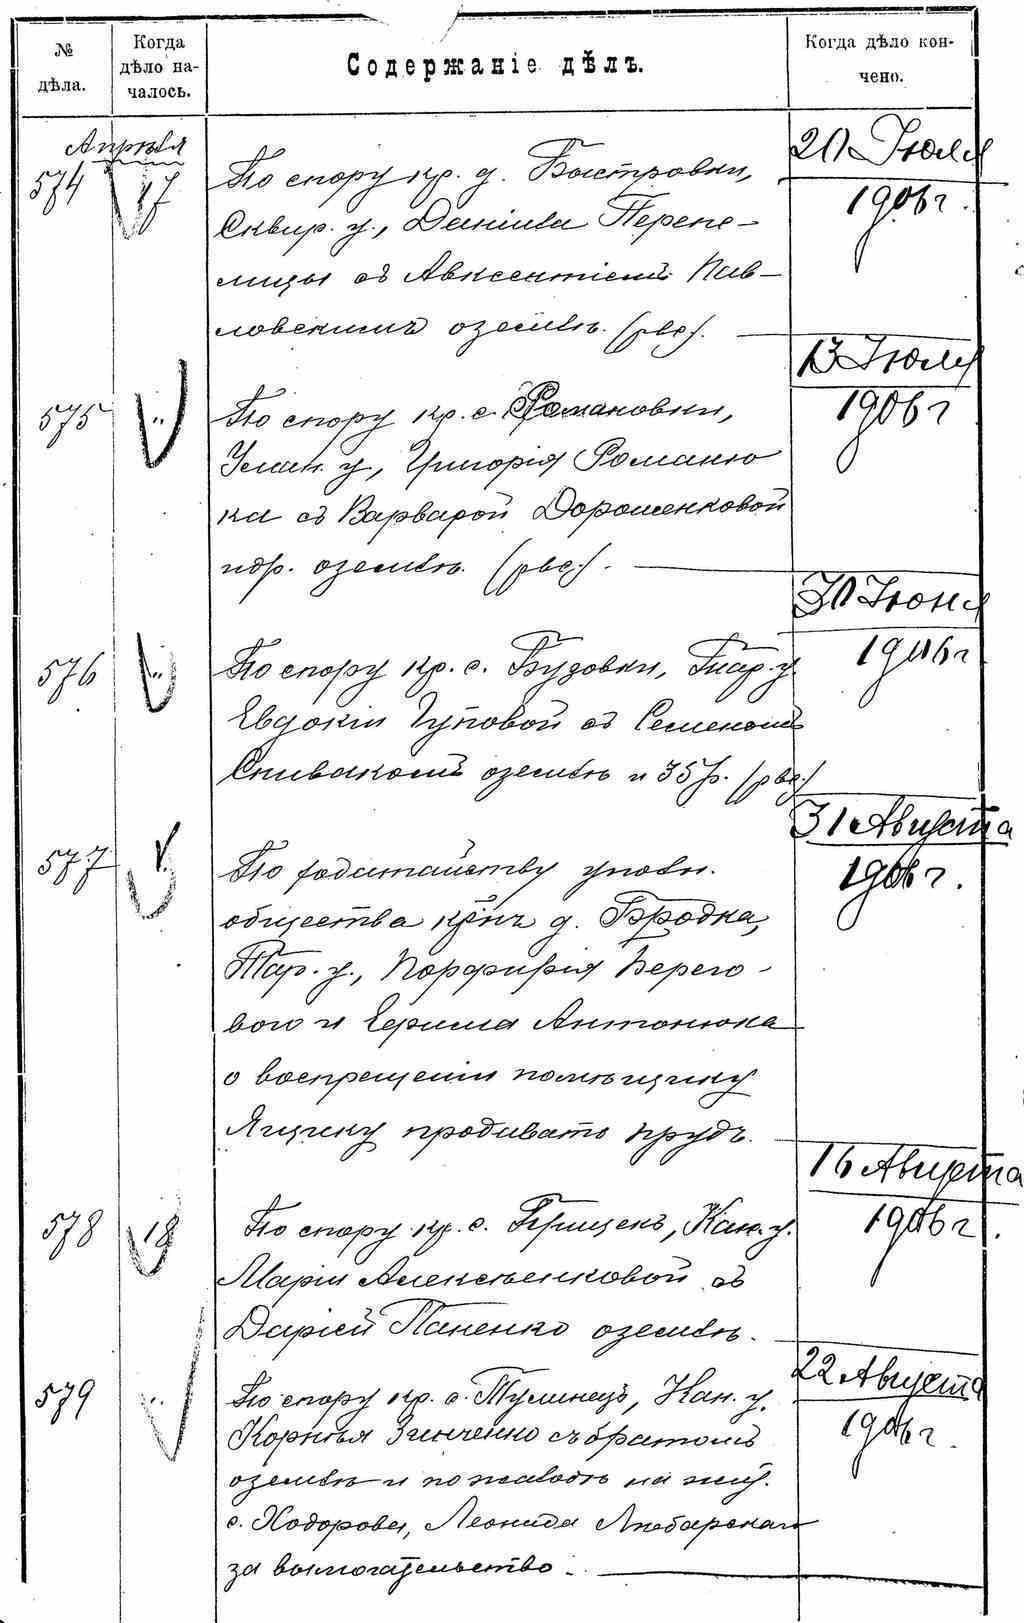 №
дѣла.
Когда
дѣло на-
чалось.
Содержаніе дѣлъ.
Когда дѣло кон-
чено.
Апрѣля
574
17
По спору кр. д. Быстровки,
Сквир. у., Даніила Перепе-
лицы съ Авксентіемъ Пав-
ловскимъ о землѣ.
20 Іюля
1906 г.
575
"
По спору кр. с. Романовки,
Уман. у., Григорія Романю
ка съ Варварой Дорошенковой
и др. о землѣ.
13 Іюля
1906 г
576
"
По спору кр. с. Бузовки, Тар. у.
Евдокіи Зуповой съ Семеномъ
Спивакомъ о землѣ и 35 р.
30 Іюня
1906 г
577
"
По ходатайству уполн.
общества кр-нъ д. Бродка,
Тар. у., Порфирія Берего-
вого и Ефима Антонюка
о воспрещеніи помѣщику
Ящику продивать прудъ.
31 Августа
1906 г.
578
18
По спору кр. с. Грищенъ, Кан. у.
Маріи Алексѣенковой съ
Дарьей Паненко о землѣ.
16 Августа
1906 г.
579
"
По спору кр. с. Тулинецъ, Кан. у.
Корнѣя Зинченко съ братомъ
о землѣ и по жалобѣ на жит.
с. Ходорова, Леонида Любарскаго
за вымогательство.
22 Августа
1906 г.